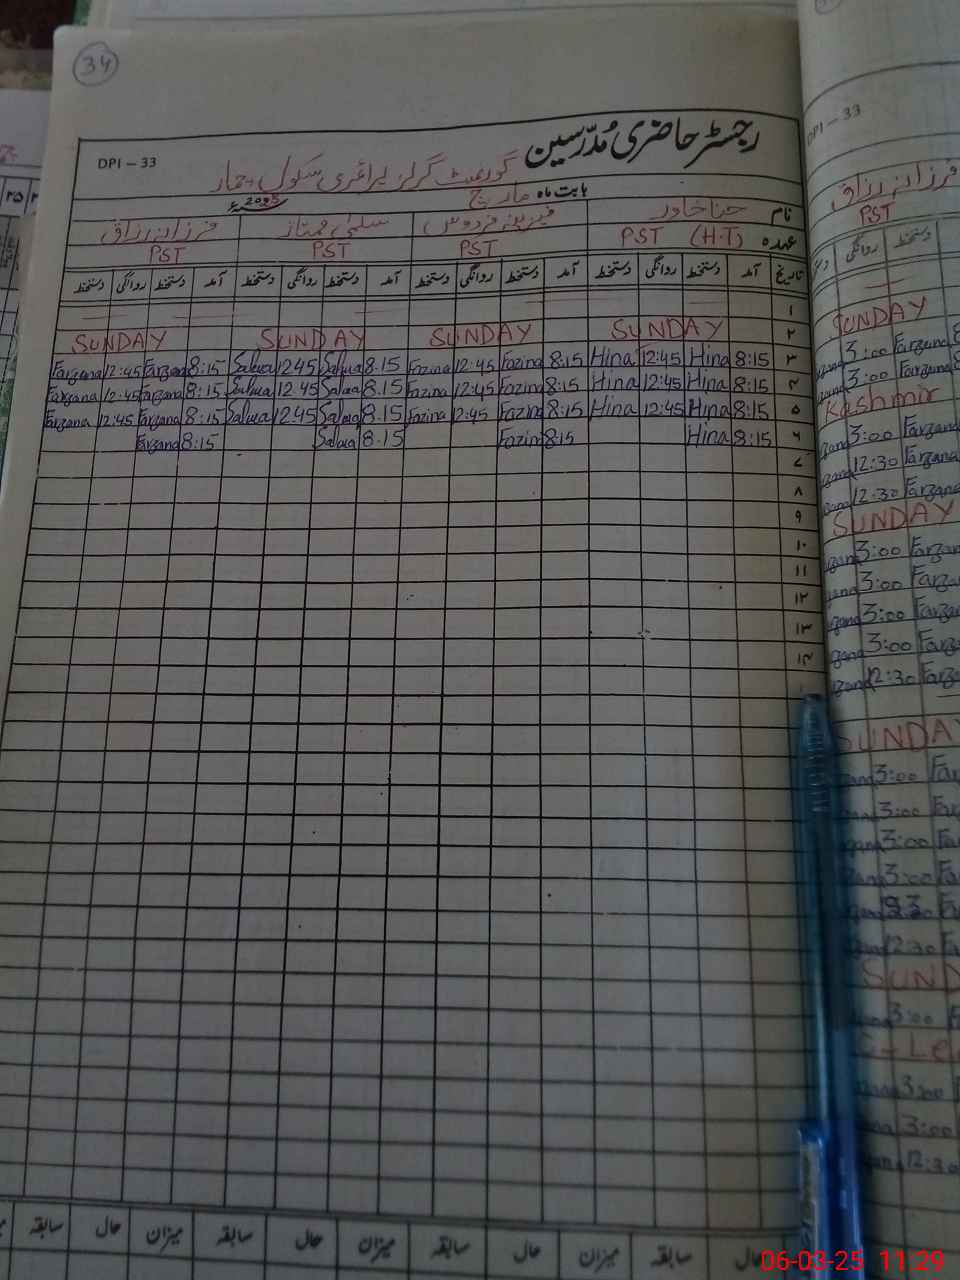 34
DPI - 33
رجسٹر حاضری مُدرّسین
گورنمنٹ گرلز پرائمری سکول
بابت ماہ مارچ 2025ء
نام حنا خاور فردوس سلمیٰ ممتاز فرزانہ رزاق
عہدہ PST (H.T) PST PST PST
تاریخ آمد دستخط روانگی دستخط آمد دستخط روانگی دستخط آمد دستخط روانگی دستخط آمد دستخط روانگی دستخط
۱
SUNDAY SUNDAY SUNDAY SUNDAY ۲
Farzana 12:45 Farzana 8:15 Salma 12 45 Salma 8.15 Fozina 12:45 Fozina 8:15 Hina 12:45 Hina 8:15 ۳
Farzana 12:45 Farzana 8:15 Salma 12 45 Salma 8.15 Fozina 12:45 Fozina 8:15 Hina 12:45 Hina 8:15 ۴
Farzana 12:45 Farzana 8:15 Salma 12 45 Salma 8.15 Fozina 12:45 Fozina 8:15 Hina 12:45 Hina 8:15 ۵
Farzana 8:15 Salma 8.15 Fozin 8:15 Hina 8:15 ۶
۷
۸
۹
۱۰
۱۱
۱۲
۱۳
۱۴
حال سابقہ میزان حال سابقہ میزان حال سابقہ میزان حال سابقہ
DPI - 33
فرزانہ رزاق
PST
دستخط روانگی
SUNDAY
3:00 Farzana
3:00 Farzana
Kashmir
3:00 Farzana
12:30 Farzana
12:30 Farzana
SUNDAY
3:00 Farzan
3:00 Farza
3:00 Farza
3:00 Farza
12:30 Farza
SUNDA
3:00 Fa
3:00 Fa
3:00 Fa
3:00 Fa
12:30 Fa
SUND
3:00 F
3:00 F
3:00
12:30
06-03-25 11:29